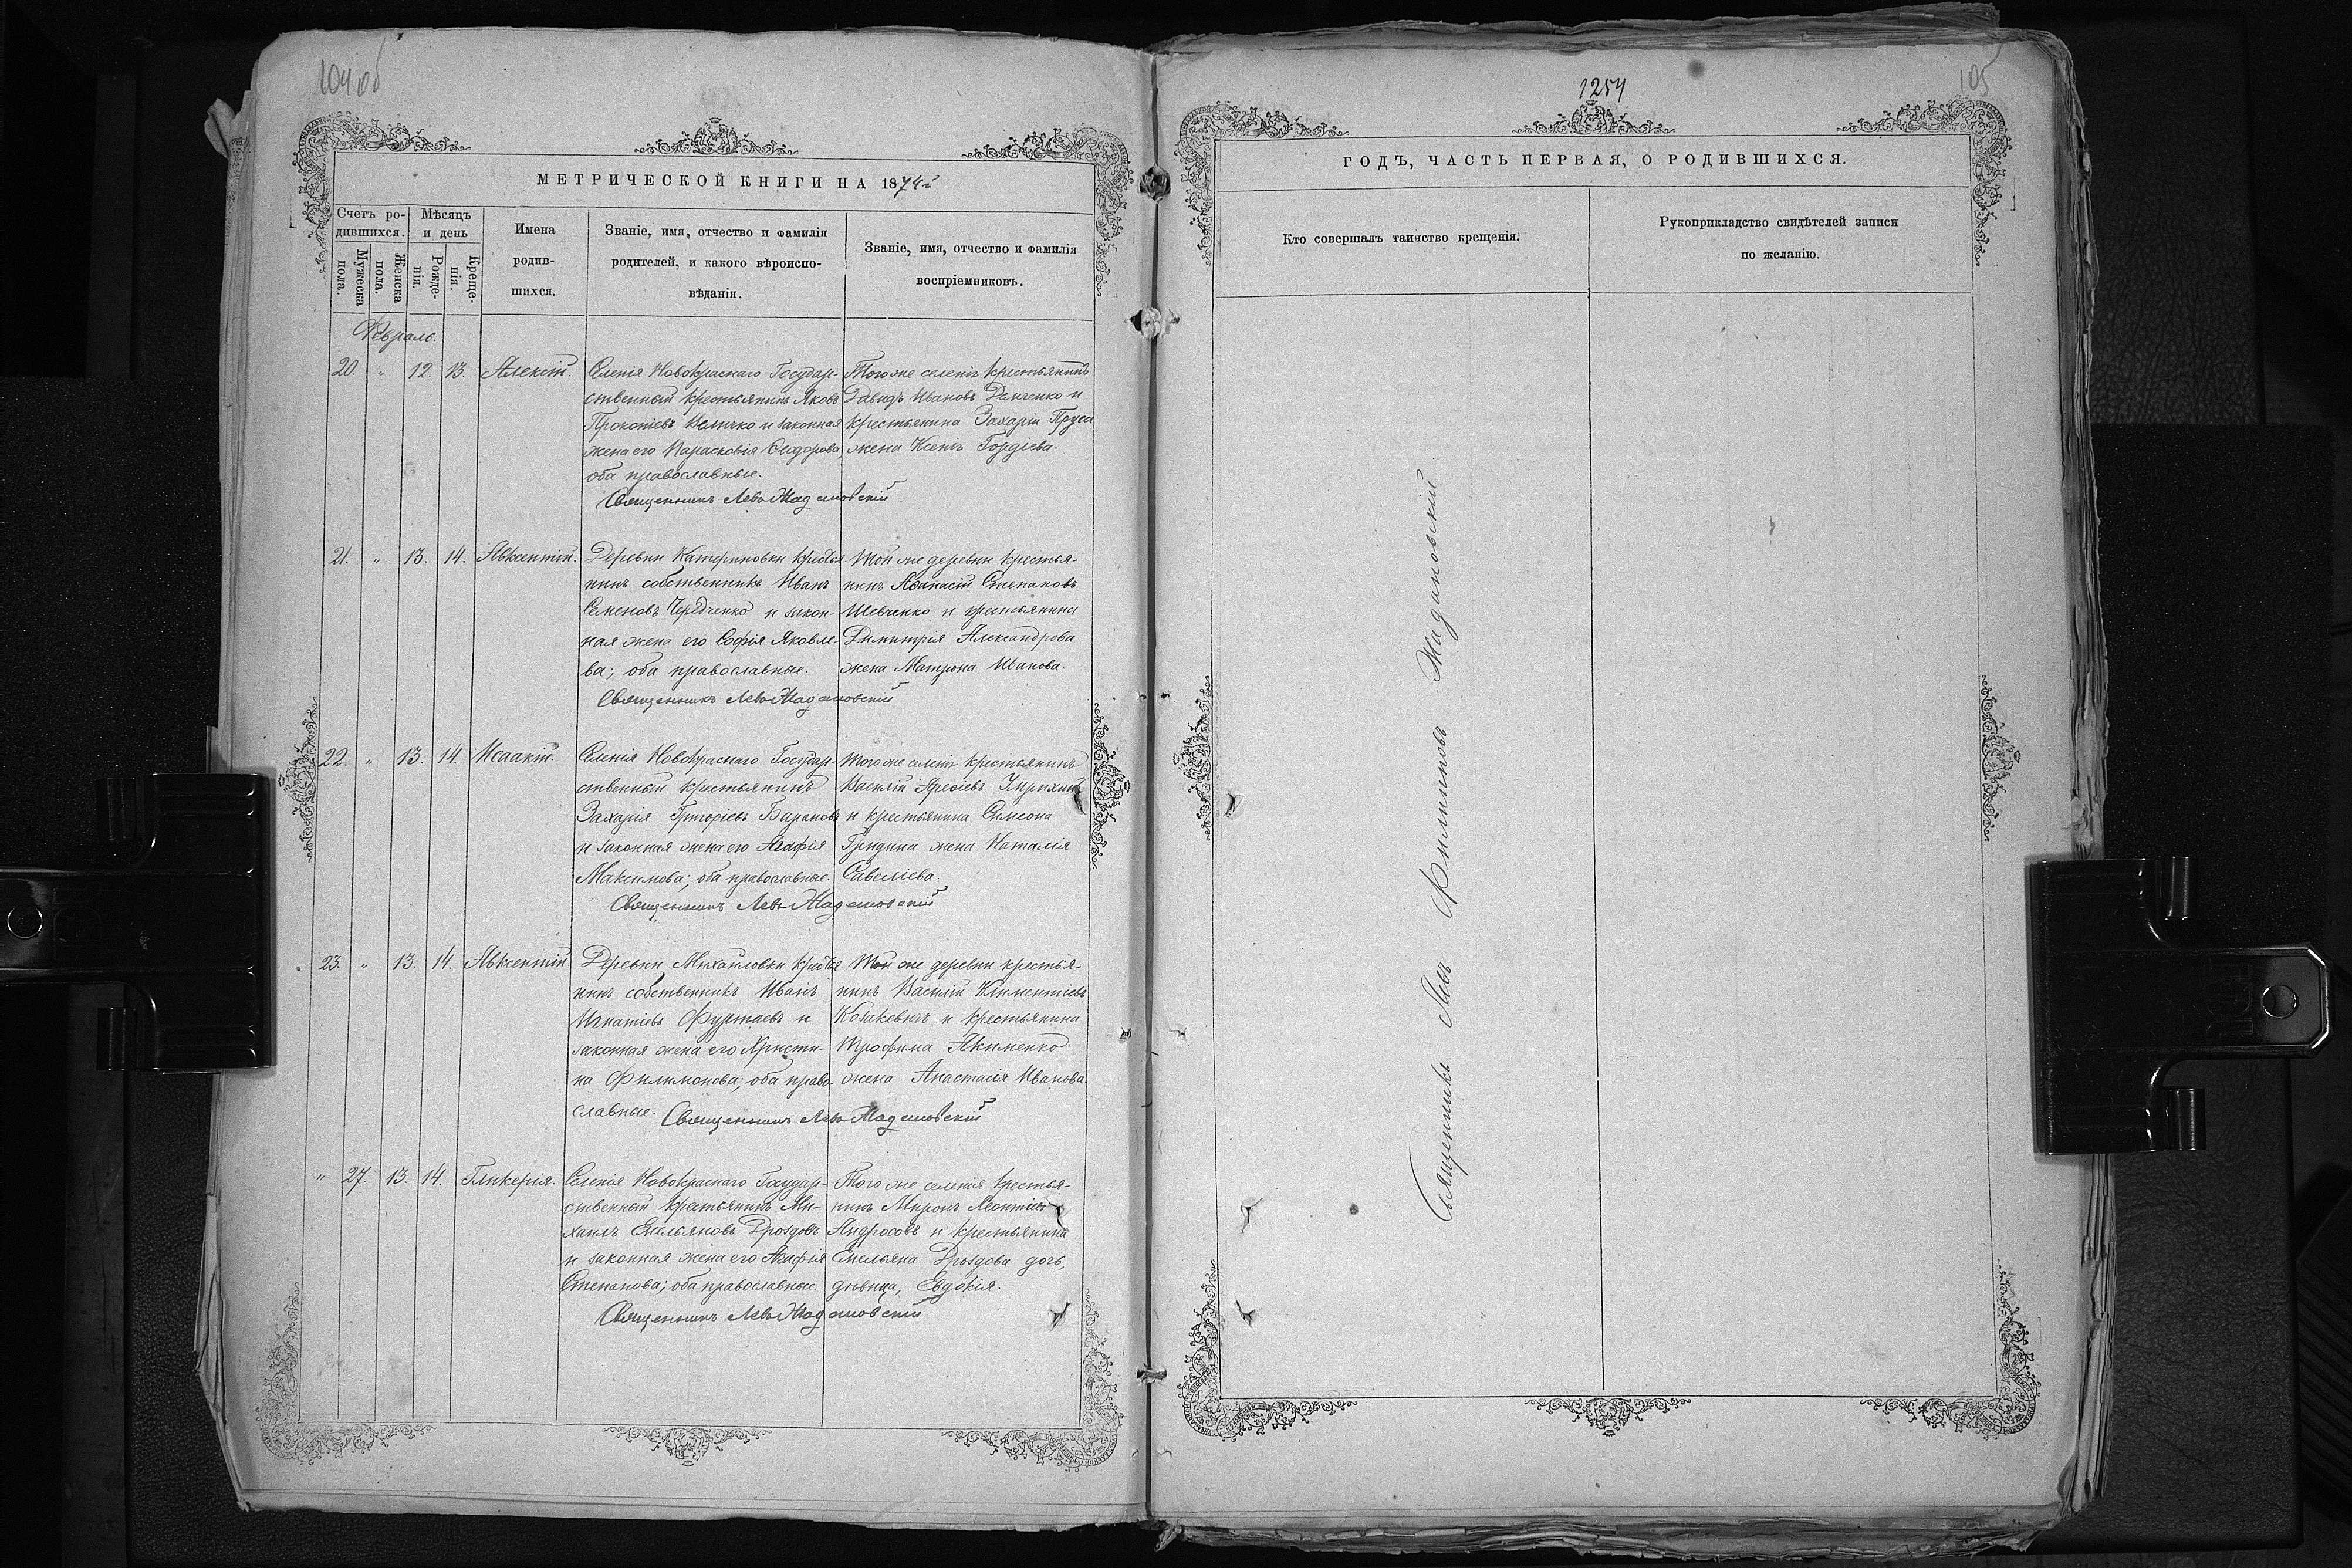 104 об
МЕТРИЧЕСКОЙ КНИГИ НА 1874й
Счетъ ро-
дившихся.
Мужеска
пола.
Женска
пола.
Мѣсяцъ
и день
Рожде-
нія.
Креще-
нія.
Имена
родив-
шихся.
Званіе, имя, отчество и фамилія
родителей, и какого вѣроиспо-
вѣданія.
Званіе, имя, отчество и фамилія
воспріемниковъ.
Февраль.
20. " 12. 13. Алексій.
Селенія Новокраснаго Государ-
ственный крестьянинъ Яковъ
Прокопіевъ Величко и законная
жена его Парасковія Сидорова,
оба православные.
Того же селенія крестьянинъ
Давидъ Ивановъ Данченко и
крестьянина Захарія Пруса
жена Ксенія Гордіева.
Священникъ Левъ Жадановскій
21. " 13. 14. Авксентій.
Деревни Катериновки крестья-
нинъ собственникъ Иванъ
Семеновъ Чередченко и закон-
ная жена его Софія Яковле-
ва; оба православные.
Той же деревни крестья-
нинъ Афанасій Степановъ
Шевченко и крестьянина
Димитрія Александрова
жена Матрона Иванова.
Священникъ Левъ Жадановскій
22. " 13. 14. Исаакій.
Селенія Новокраснаго Государ-
ственный крестьянинъ
Захарія Григоріевъ Барановъ
и законная жена его Агафія
Максимова; оба православные.
Того же селенія крестьянинъ
Василій Арефіевъ
и крестьянина Симеона
Гридина жена Наталія
Савеліева.
Священникъ Левъ Жадановскій
23. " 13. 14. Авксентій.
Деревни Михайловки крестья-
нинъ собственникъ Иванъ
Игнатіевъ Фуртаевъ и
законная жена его Христи-
на Филимонова; оба право-
славные.
Той же деревни крестья-
нинъ Василій Климентіевъ
Козакевичъ и крестьянина
Трофима Якименко
жена Анастасія Иванова.
Священникъ Левъ Жадановскій
" 27. 13. 14. Гликерія.
Селенія Новокраснаго Государ-
ственный крестьянинъ Ми-
хаилъ Емельяновъ Дроздовъ
и законная жена его Агафія
Степанова; оба православные.
Того же селенія крестья-
нинъ Миронъ Леонтіевъ
Андросовъ и крестьянина
Емельяна Дроздова дочь,
дѣвица, Евдокія.
Священникъ Левъ Жадановскій
1254
105
ГОДЪ, ЧАСТЬ ПЕРВАЯ, О РОДИВШИХСЯ.
Кто совершалъ таинство крещенія.
Рукоприкладство свидѣтелей записи
по желанію.
Священникъ Левъ Филипповъ Жадановскій